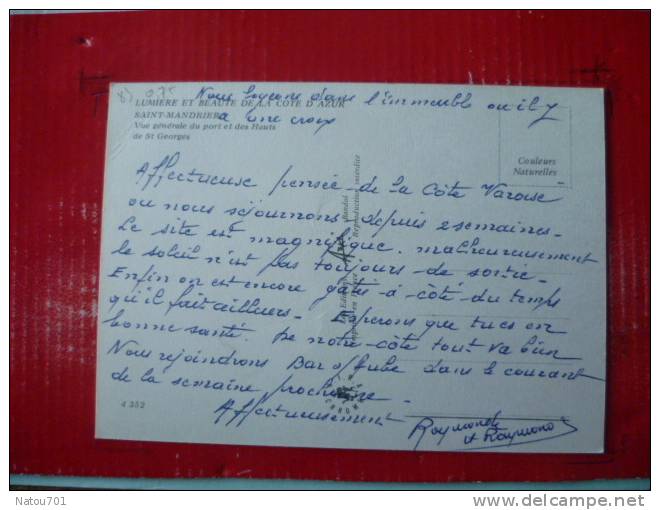 8) 0,75
Nous logeons dans l'immeuble ou il y
a une croix
LUMIERE ET BEAUTE DE LA COTE D'AZUR
SAINT-MANDRIER
Vue générale du port et des Hauts
de St Georges
Couleurs
Naturelles
Affectueuse pensée de la Côte Varoise
ou nous séjournons depuis 2 semaines.
Le site est magnifique. malheureusement
le soleil n'est pas toujours de sortie.
Enfin on est encore gâtés à côté du temps
qu'il fait ailleurs. Esperons que tu es en
bonne santé. De notre côté tout va bien
Nous rejoindrons Bar s/Aube dans le courant
de la semaine prochaine.
Affectueusement
Raymonde
et Raymond
4 352
Reproduction interdite
Natou701